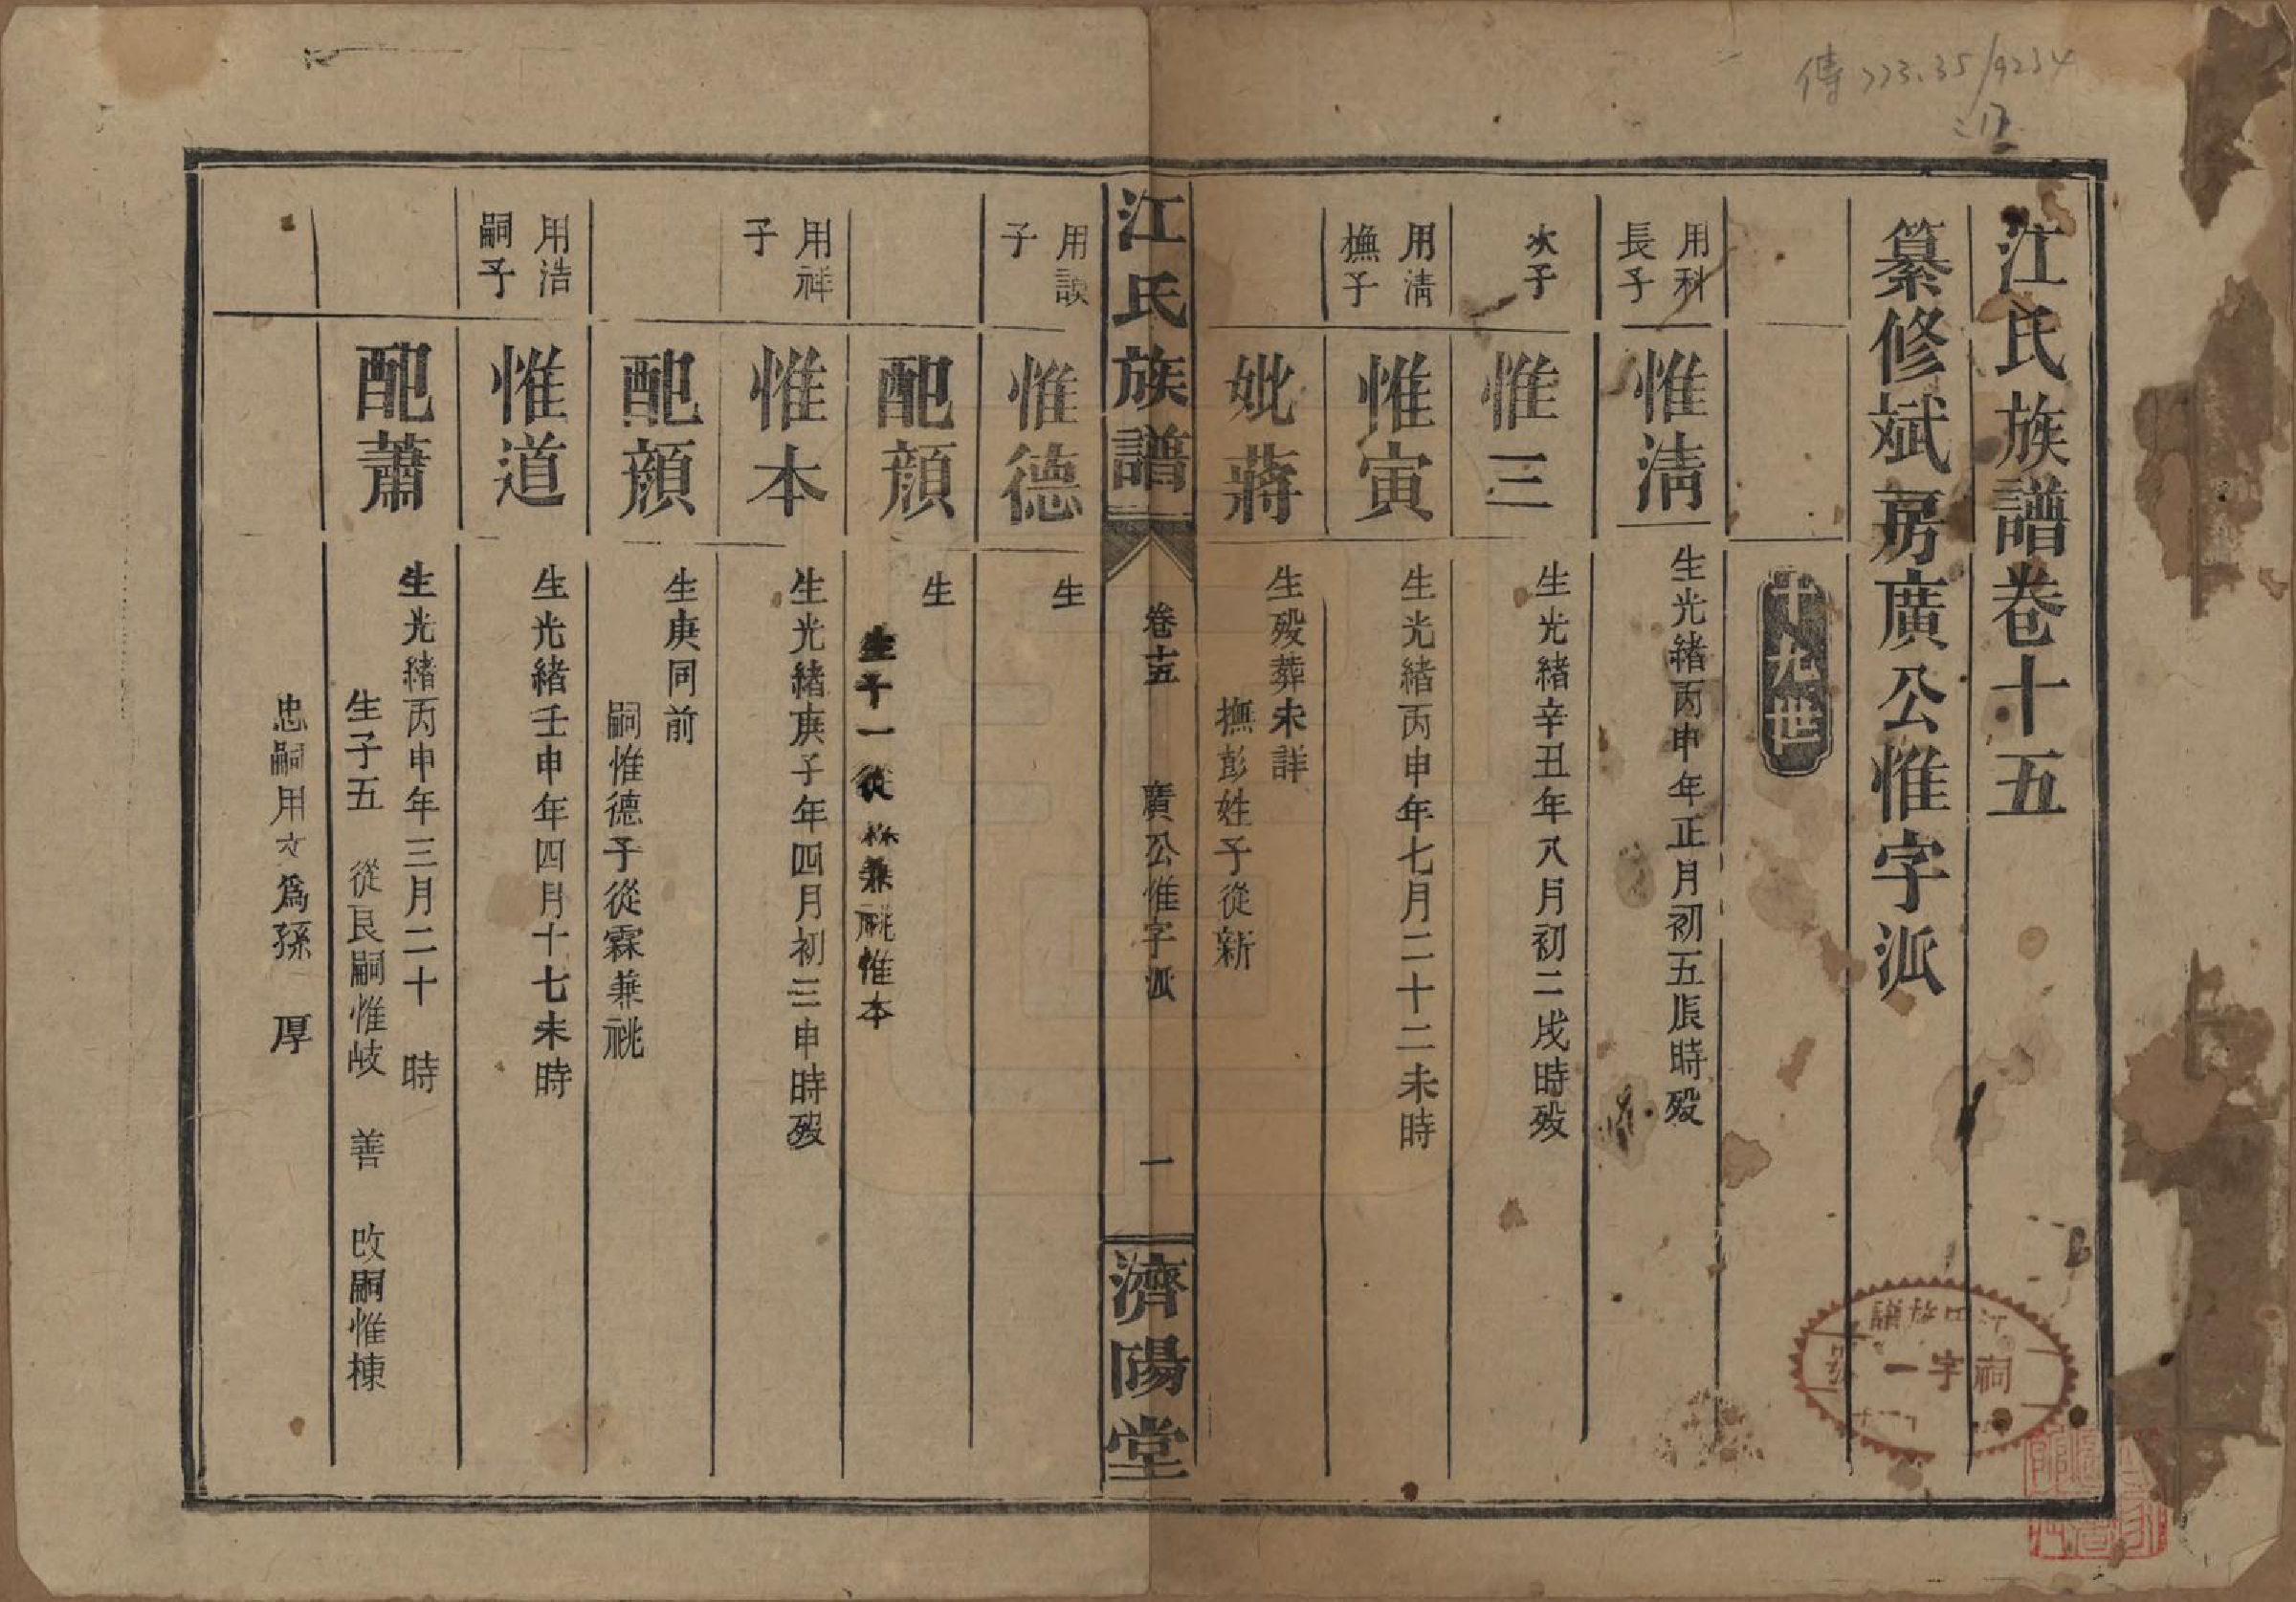 江氏族譜卷十五
纂修斌房廣公惟字派
十九世
用科長子
惟淸
生光緒丙申年正月初五辰時殁
次子
惟三
生光緒辛丑年八月初二戌時殁
用淸撫子
惟寅
生光緒丙申年七月二十二未時
妣蔣
生殁葬未詳
撫彭姓子從新
江氏族譜
卷十五
廣公惟字派
一
濟陽堂
用談子
惟德
生
配顔
生
生子一從霖兼祧惟本
用祥子
惟本
生光緒庚子年四月初三申時殁
配顔
生庚同前
嗣惟德子從霖兼祧
用浩嗣子
惟道
生光緒壬申年四月十七未時
配蕭
生光緒丙申年三月二十 時
生子五 從良嗣惟岐 善 改嗣惟棟
忠嗣用文爲孫 厚
傳773.35/9234
:17
祠字一